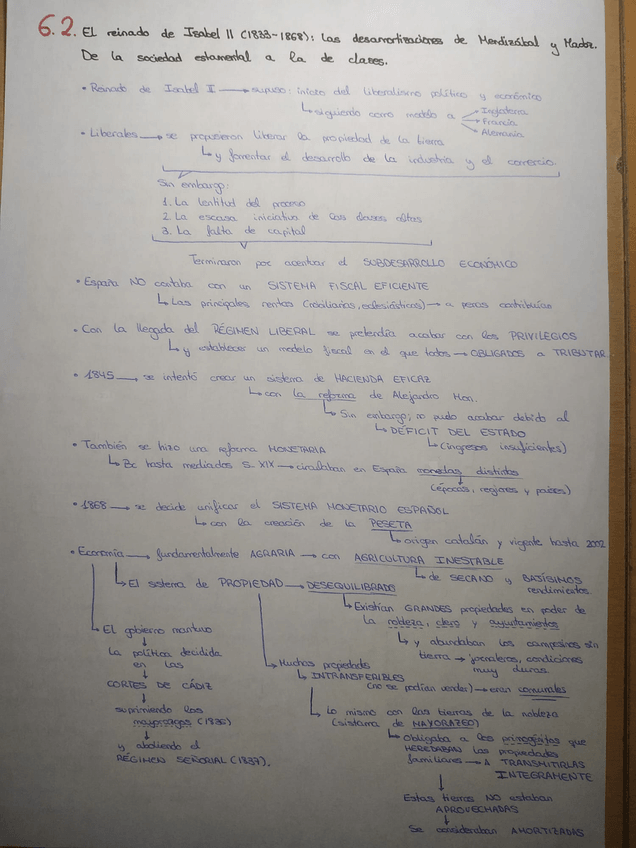 6.2. El reinado de Isabel II (1833-1868): las desamortizaciones de Mendizábal y Madoz.
De la sociedad estamental a la de clases.
• Reinado de Isabel II → supuso: inicio del liberalismo político y económico
↳ siguiendo como modelo a → Inglaterra
→ Francia
→ Alemania
• Liberales → se propusieron liberar la propiedad de la tierra
↳ y fomentar el desarrollo de la industria y el comercio.
Sin embargo:
1. La lentitud del proceso
2. La escasa iniciativa de las clases altas
3. La falta de capital
Terminaron por acentuar el SUBDESARROLLO ECONÓMICO
• España NO contaba con un SISTEMA FISCAL EFICIENTE
↳ Las principales rentas (nobiliarias, eclesiásticas) → a penas contribuían
• Con la llegada del RÉGIMEN LIBERAL se pretendía acabar con los PRIVILEGIOS
↳ y establecer un modelo fiscal en el que todos → OBLIGADOS a TRIBUTAR
• 1845 → se intentó crear un sistema de HACIENDA EFICAZ
↳ con la reforma de Alejandro Mon.
↳ Sin embargo; no pudo acabar debido al
↳ DÉFICIT DEL ESTADO
↳ (ingresos insuficientes)
• También se hizo una reforma MONETARIA
↳ Bc hasta mediados S. XIX → circulaban en España monedas distintas
(épocas, regiones y países)
• 1868 → se decide unificar el SISTEMA MONETARIO ESPAÑOL
↳ con la creación de la PESETA
↳ origen catalán y vigente hasta 2002
• Economía → fundamentalmente AGRARIA → con AGRICULTURA INESTABLE
↳ de SECANO y BASÍSIMOS
rendimientos.
↳ El sistema de PROPIEDAD → DESEQUILIBRADO
↳ Existían GRANDES propiedades en poder de
la nobleza, clero y ayuntamientos
↳ y abundaban los campesinos sin
tierra → jornaleros, condiciones
muy duras
↳ El gobierno mantuvo
↓
la política decidida
en las
↓
CORTES DE CÁDIZ
↓
suprimiendo los
mayorazgos (1836)
↓
y aboliendo el
RÉGIMEN SEÑORIAL (1837).
↳ Muchas propiedades
↳ INTRANSFERIBLES
(no se podían vender) → eran comunales
↳ Lo mismo con las tierras de la nobleza
(sistema de MAYORAZGO)
↳ Obligaba a los primogénitos que
HEREDABAN las propiedades
familiares → A TRANSMITIRLAS
ÍNTEGRAMENTE
↓
Estas tierras NO estaban
APROVECHADAS
↓
Se consideraban AMORTIZADAS